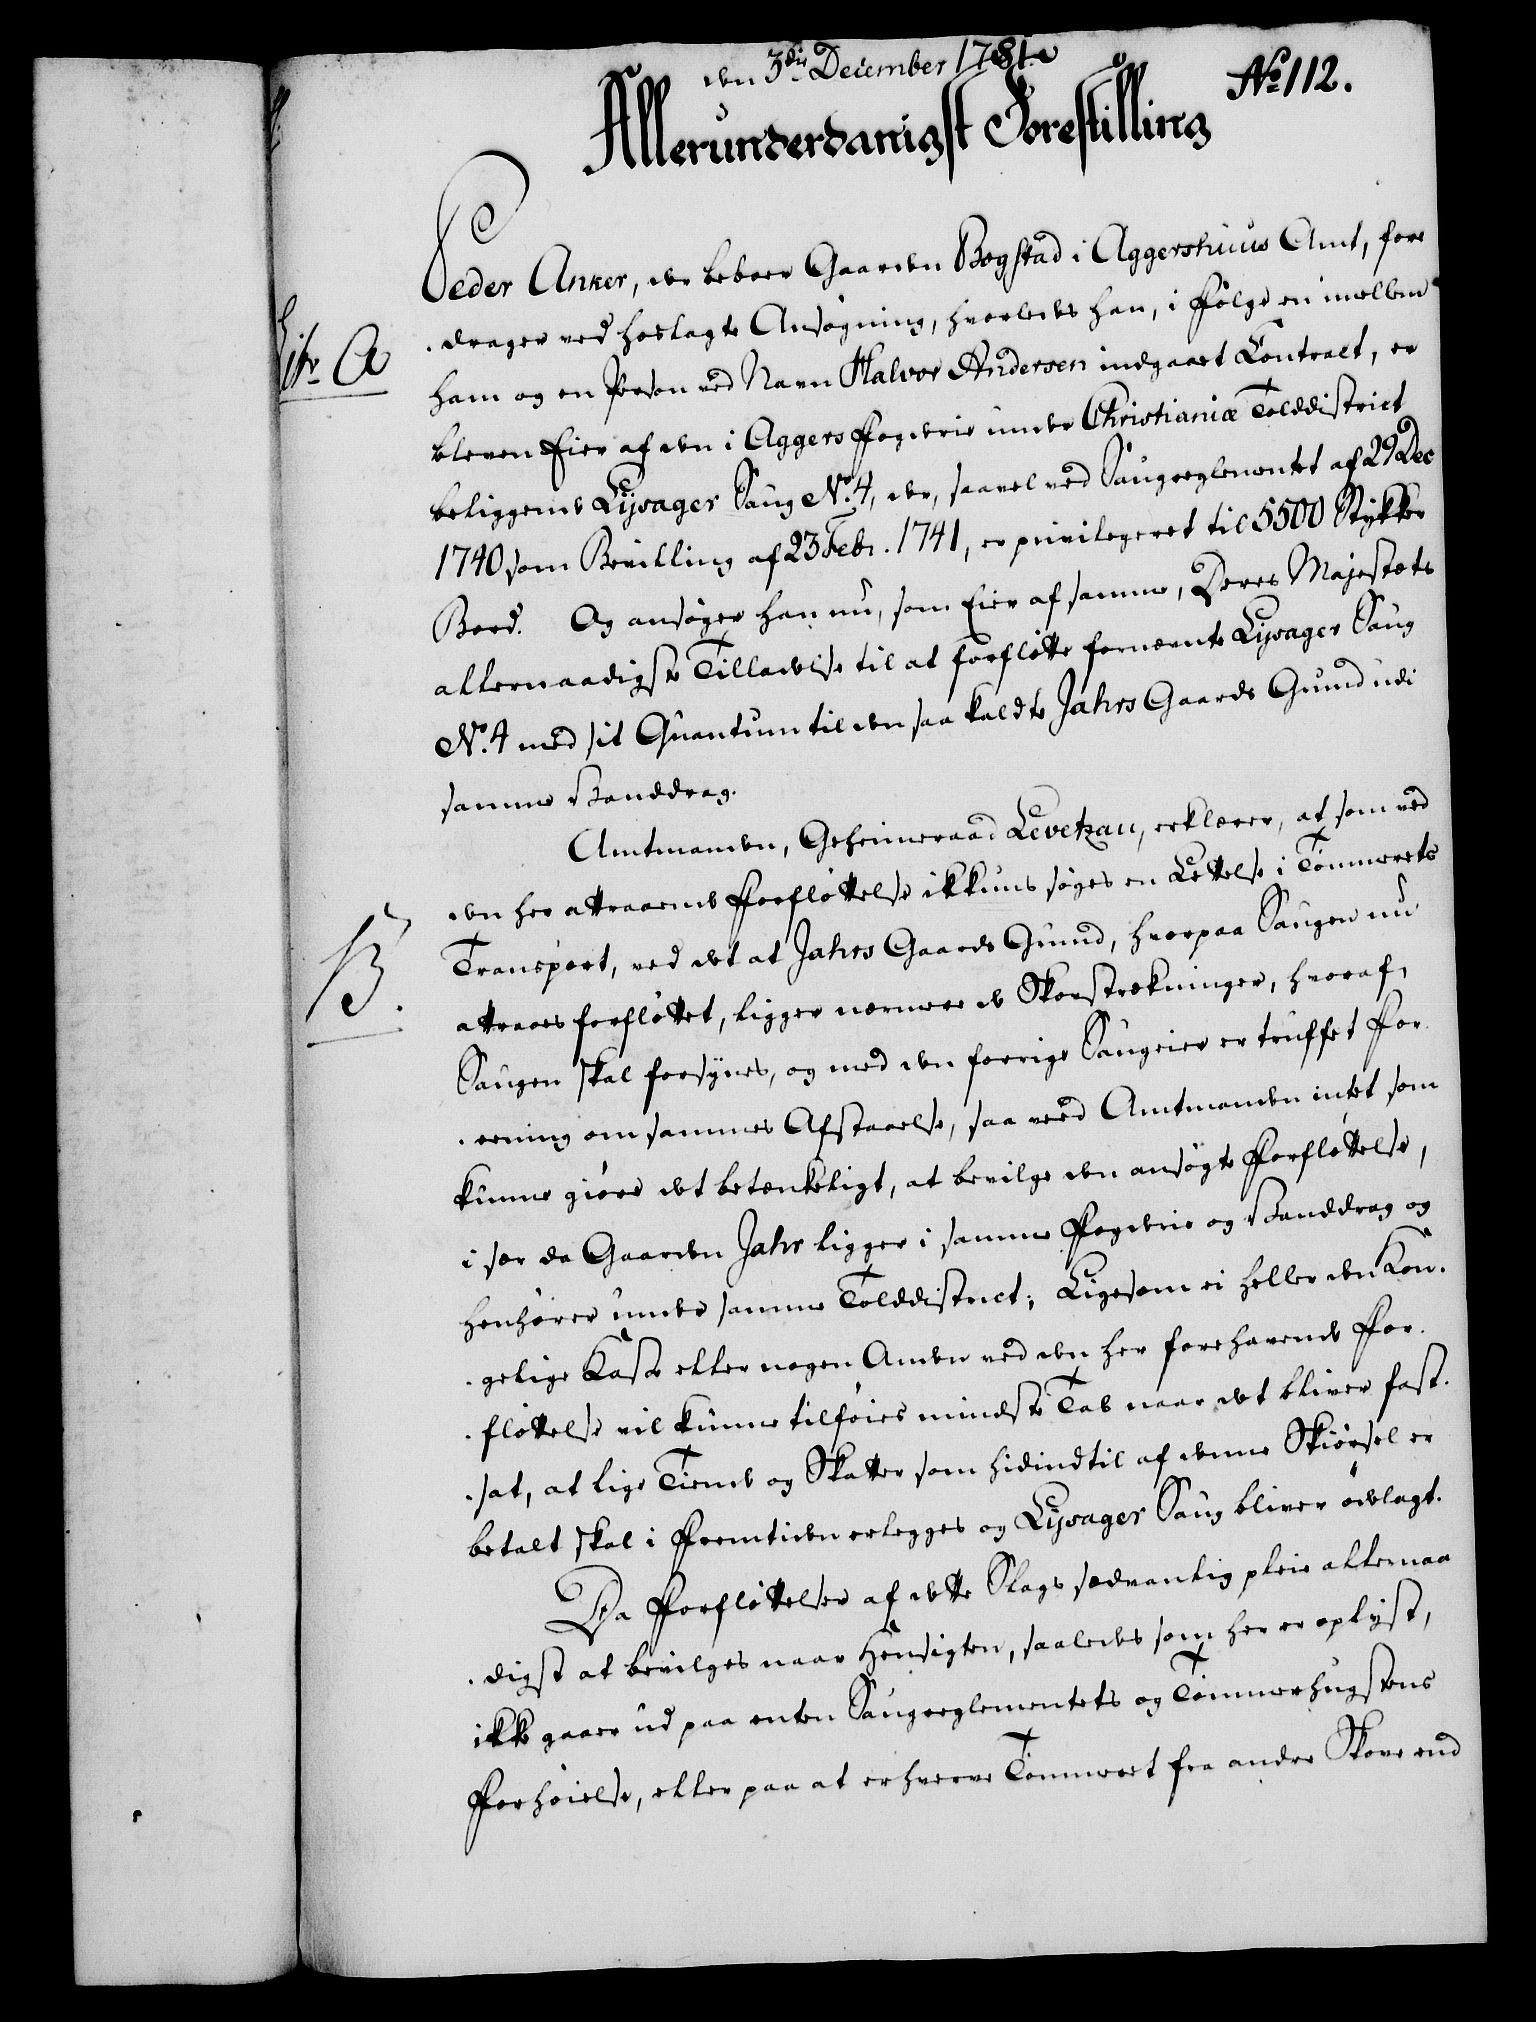 den 3die December 1781.
No 112.
Allerunderdanigst Forestilling
Peder Anker, der beboer Gaarden Bogstad i Aggershuus Amt, fore
Litr. A
drager ved hoslagte Ansøgning, hvorledes han, i Følge en imellem
ham og en Person ved Navn Halvor Andersen indgaaet Contract, er
bleven Eier af den i Aggers Fogderie under Christianiæ Tolddistrict
beliggende Lysager Saug No. 4, der, saavel ved Saugreglementet af 29 Dec
1740 som Bevilling af 23 Febr. 1741, er privilegeret til 5500 Stykker
Bord. Og ansøger han nu, som Eier af samme, Deres Majestæts
allernaadigste Tilladelse til at forflótte fornævnte Lysager Saug
No. 4 med sit Quantum til den saa kaldte Jahrs Gaards Grund udi
samme Vanddrag.
Amtmanden, Geheimeraad Levetzau, erklærer, at som ved
den her attraaende Forflóttelse ikkuns søges en Lettelse i Tømmerets
B.
Transport, ved det at Jahrs Gaards Grund, hvorpaa Saugen nu
attraaes forflóttet, ligger nærmere de Skovstrækninger, hvoraf
Saugen skal forsynes, og med den forrige Saugeier er truffet For
eening om sammes Afstaaelse, saa veed Amtmanden intet som
kunne giøre det betænkeligt, at bevilge den ansøgte Forflóttelse,
i sær da Gaarden Jahr ligger i samme Fogderie og Vanddrag og
henhører under samme Tolddistrict; Ligesom ei heller den Kon.
gelige Kasse eller nogen Anden ved den her forehavende For.
flóttelse vil kunne tilføies mindste Tab naar det bliver fast.
sat, at lige Tiende og Skatter som hidindtil af denne Skiørsel er
betalt skal i Fremtiden erlegges og Lysager Saug bliver ødelagt.
Da Forflóttelser af dette Slags sædvanlig pleie allernaa
digst at bevilges naar Hensigten, saaledes som her er oplyst,
ikke gaaer ud paa enten Saugreglementets og Tømmerhugstens
Forhøielse, eller paa at erhverve Tømmeret fra andre Skove end